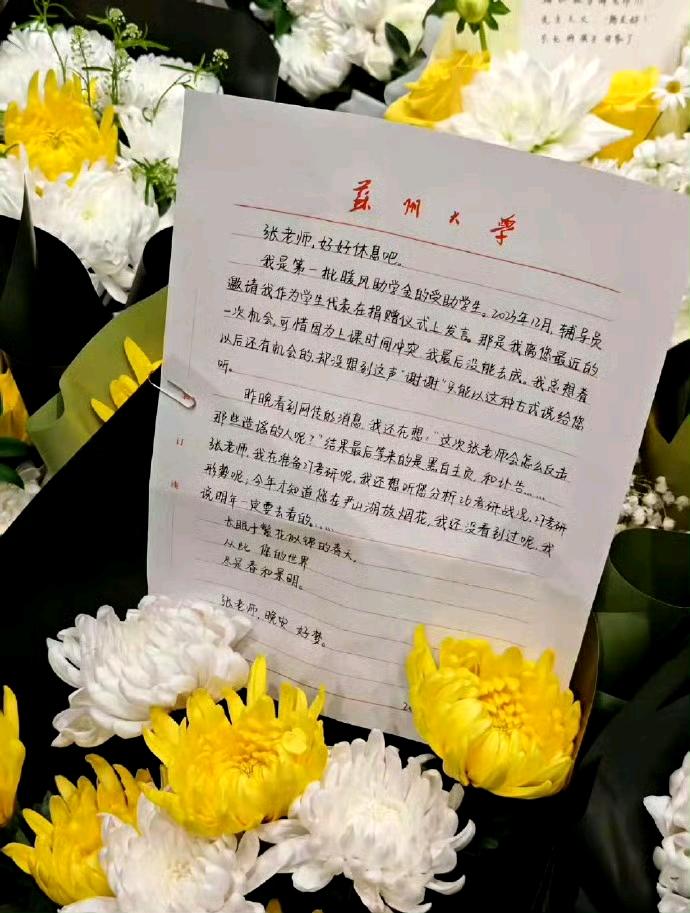 蘇州大学
张老师,好好休息吧。
我是第一批暖风助学金的受助学生。2023年12月,辅导员
邀请我作为学生代表在捐赠仪式上发言。那是我离您最近的
一次机会,可惜因为上课时间冲突,我最后没能去成。我总想着
以后还有机会的,却没想到这声“谢谢”只能以这种方式说给您
听。
昨晚看到网传的消息,我还在想:“这次张老师会怎么反击
那些造谣的人呢?”结果最后等来的是黑白主页,和讣告……
张老师,我在准备27考研呢,我还想听您分析26考研战况,27考研
形势呢;今年才知道您在尹山湖放烟花,我还没看到过呢,我
说明年一定要去看的……
长眠于繁花似锦的春天,
从此 您的世界
尽是春和景明。
张老师,晚安 好梦。